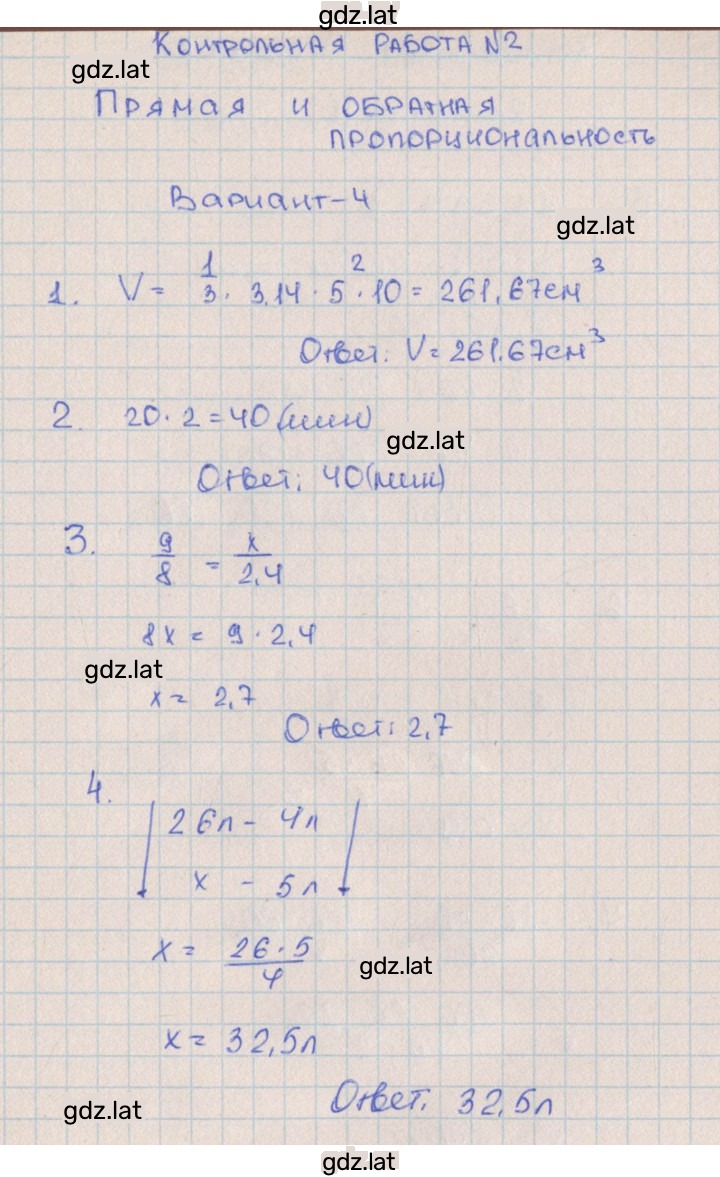 gdz.lat
Контрольная работа №2
gdz.lat
Прямая и обратная
пропорциональность
Вариант-4
gdz.lat
1. V = 1/3 · 3,14 · 5² · 10 = 261,67см³
Ответ: V = 261.67см³
2. 20 · 2 = 40 (мин)
gdz.lat
Ответ: 40(мин)
3. 9/8 = x/2,4
8x = 9 · 2,4
gdz.lat
x = 2,7
Ответ: 2,7
4.
↓ 26л - 4л ↓
x - 5л
x = 26·5/4
gdz.lat
x = 32,5л
Ответ. 32,5л
gdz.lat
gdz.lat